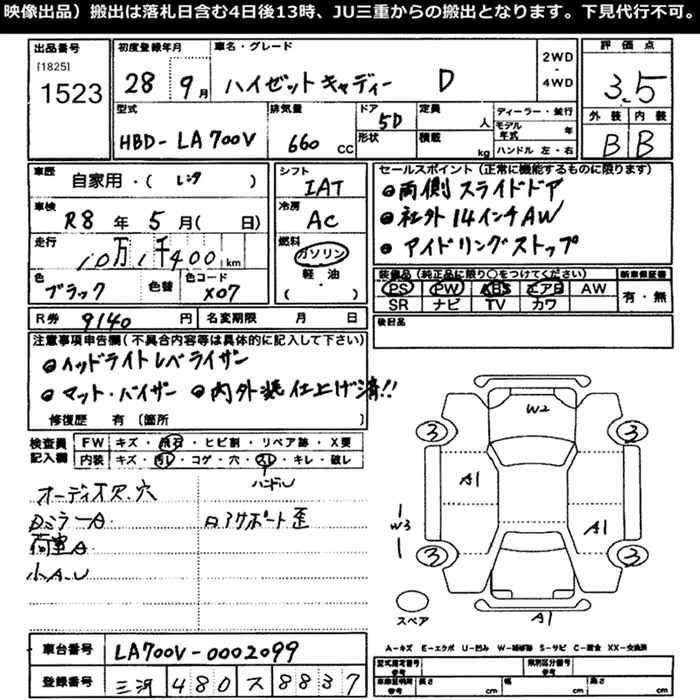 映像出品）搬出は落札日含む4日後13時、JU三重からの搬出となります。下見代行不可。
出品番号
[1825]
1523
初度登録年月
28 9月
車名・グレード
ハイゼットキャディー D
2WD
・
4WD
評価点
3.5
外装 内装
B B
型式
HBD-LA700V
排気量
660 CC
ドア
5D
形状
定員
人
積載
kg
ディーラー・並行
モデル年式 年
ハンドル 左・右
車歴
自家用・( レンタ )
車検
R8年5月( 日)
走行
10万1千400km
色
ブラック
色替
色コード
X07
シフト
IAT
冷房
AC
燃料
ガソリン
軽・油
( ・ )
セールスポイント（正常に機能するものに限ります）
●両側スライドドア
●社外14インチAW
●アイドリングストップ
装備品（純正品に限り○をつけてください）
PS PW ABS エアB AW
SR ナビ TV カワ
新車保証書
有・無
後日品
R券 9140円
名変期限 月 日
注意事項申告欄（不具合内容等は具体的に記入して下さい）
●ヘッドライトレベライザー
●マット・バイザー ●内外装仕上げ済!!
修復歴 有 〔箇所 〕
検査員記入欄
FW キズ・飛石・ヒビ割・リペア跡・X要
内装 キズ・汚レ・コゲ・穴・スレ・キレ・破レ
ハンドル
オーディオ穴.穴
DミラーA.
荷室A
小A.U
ロアサポート歪
車台番号 LA700V-0002099
登録番号 三河 480 ス 8837
W2
3 3
A1
W3
A1
3 3
スペア
A1
A-キズ E-エクボ U-凹み W-補修跡 S-サビ C-腐食 XX-交換済
型式指定番号 参考
類別区分番号 参考
車庫証明用 参考
長さ cm
幅 cm
高さ cm